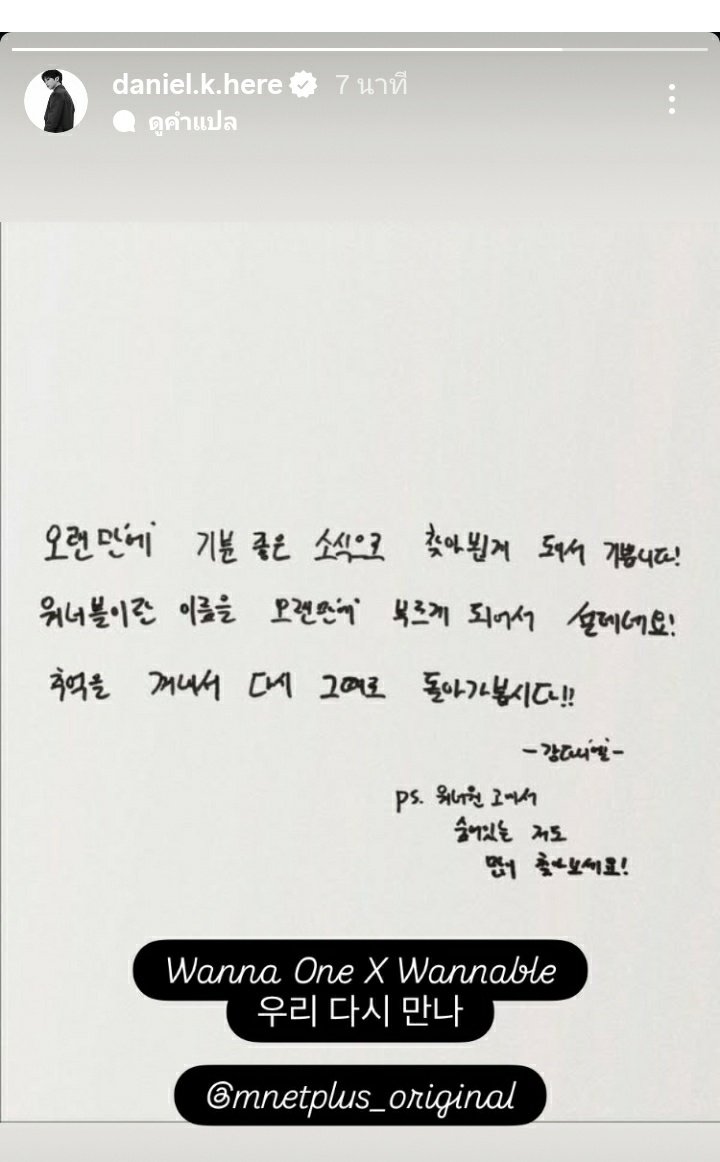 daniel.k.here 7 นาที
ดูคำแปล
오랜만에 기분 좋은 소식으로 찾아뵙게 돼서 기쁩니다!
워너블이란 이름을 오랜만에 부르게 되어서 설레네요!
추억을 꺼내서 다시 그때로 돌아가봅시다!!
-강다니엘-
ps. 워너원 고에서
숨어있는 저도
많이 찾아보세요!
Wanna One X Wannable
우리 다시 만나
@mnetplus_original